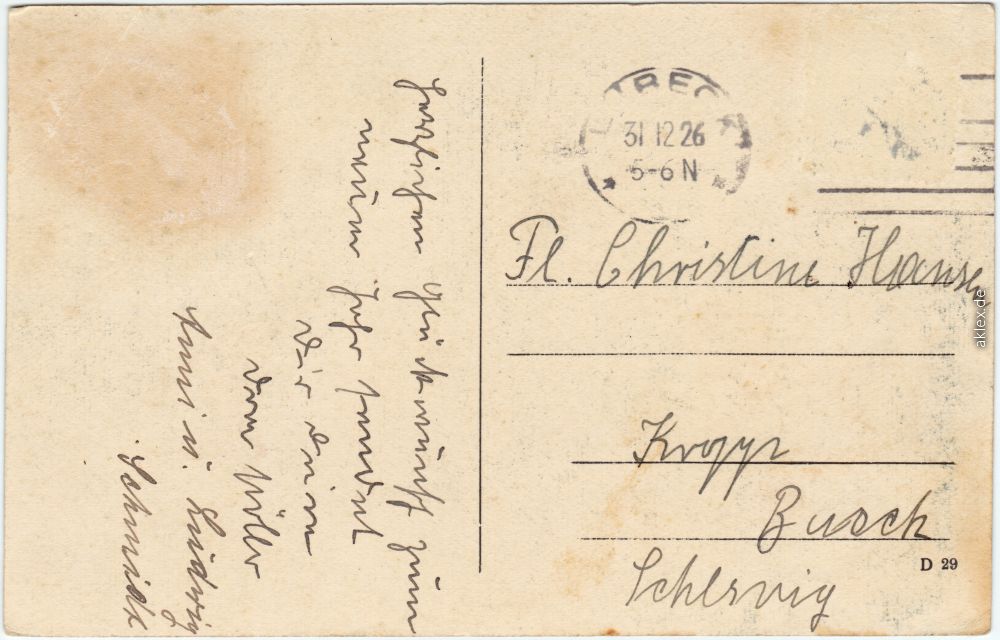 Herzlichen Glückwunsch zum
neuen Jahr sendet
Dir deine
Anni u. Ludwig
Schmidt
31 12 26
5-6 N
Fl. Christine Hansen
Kropp
Busch
Schleswig
D 29
aklex.de